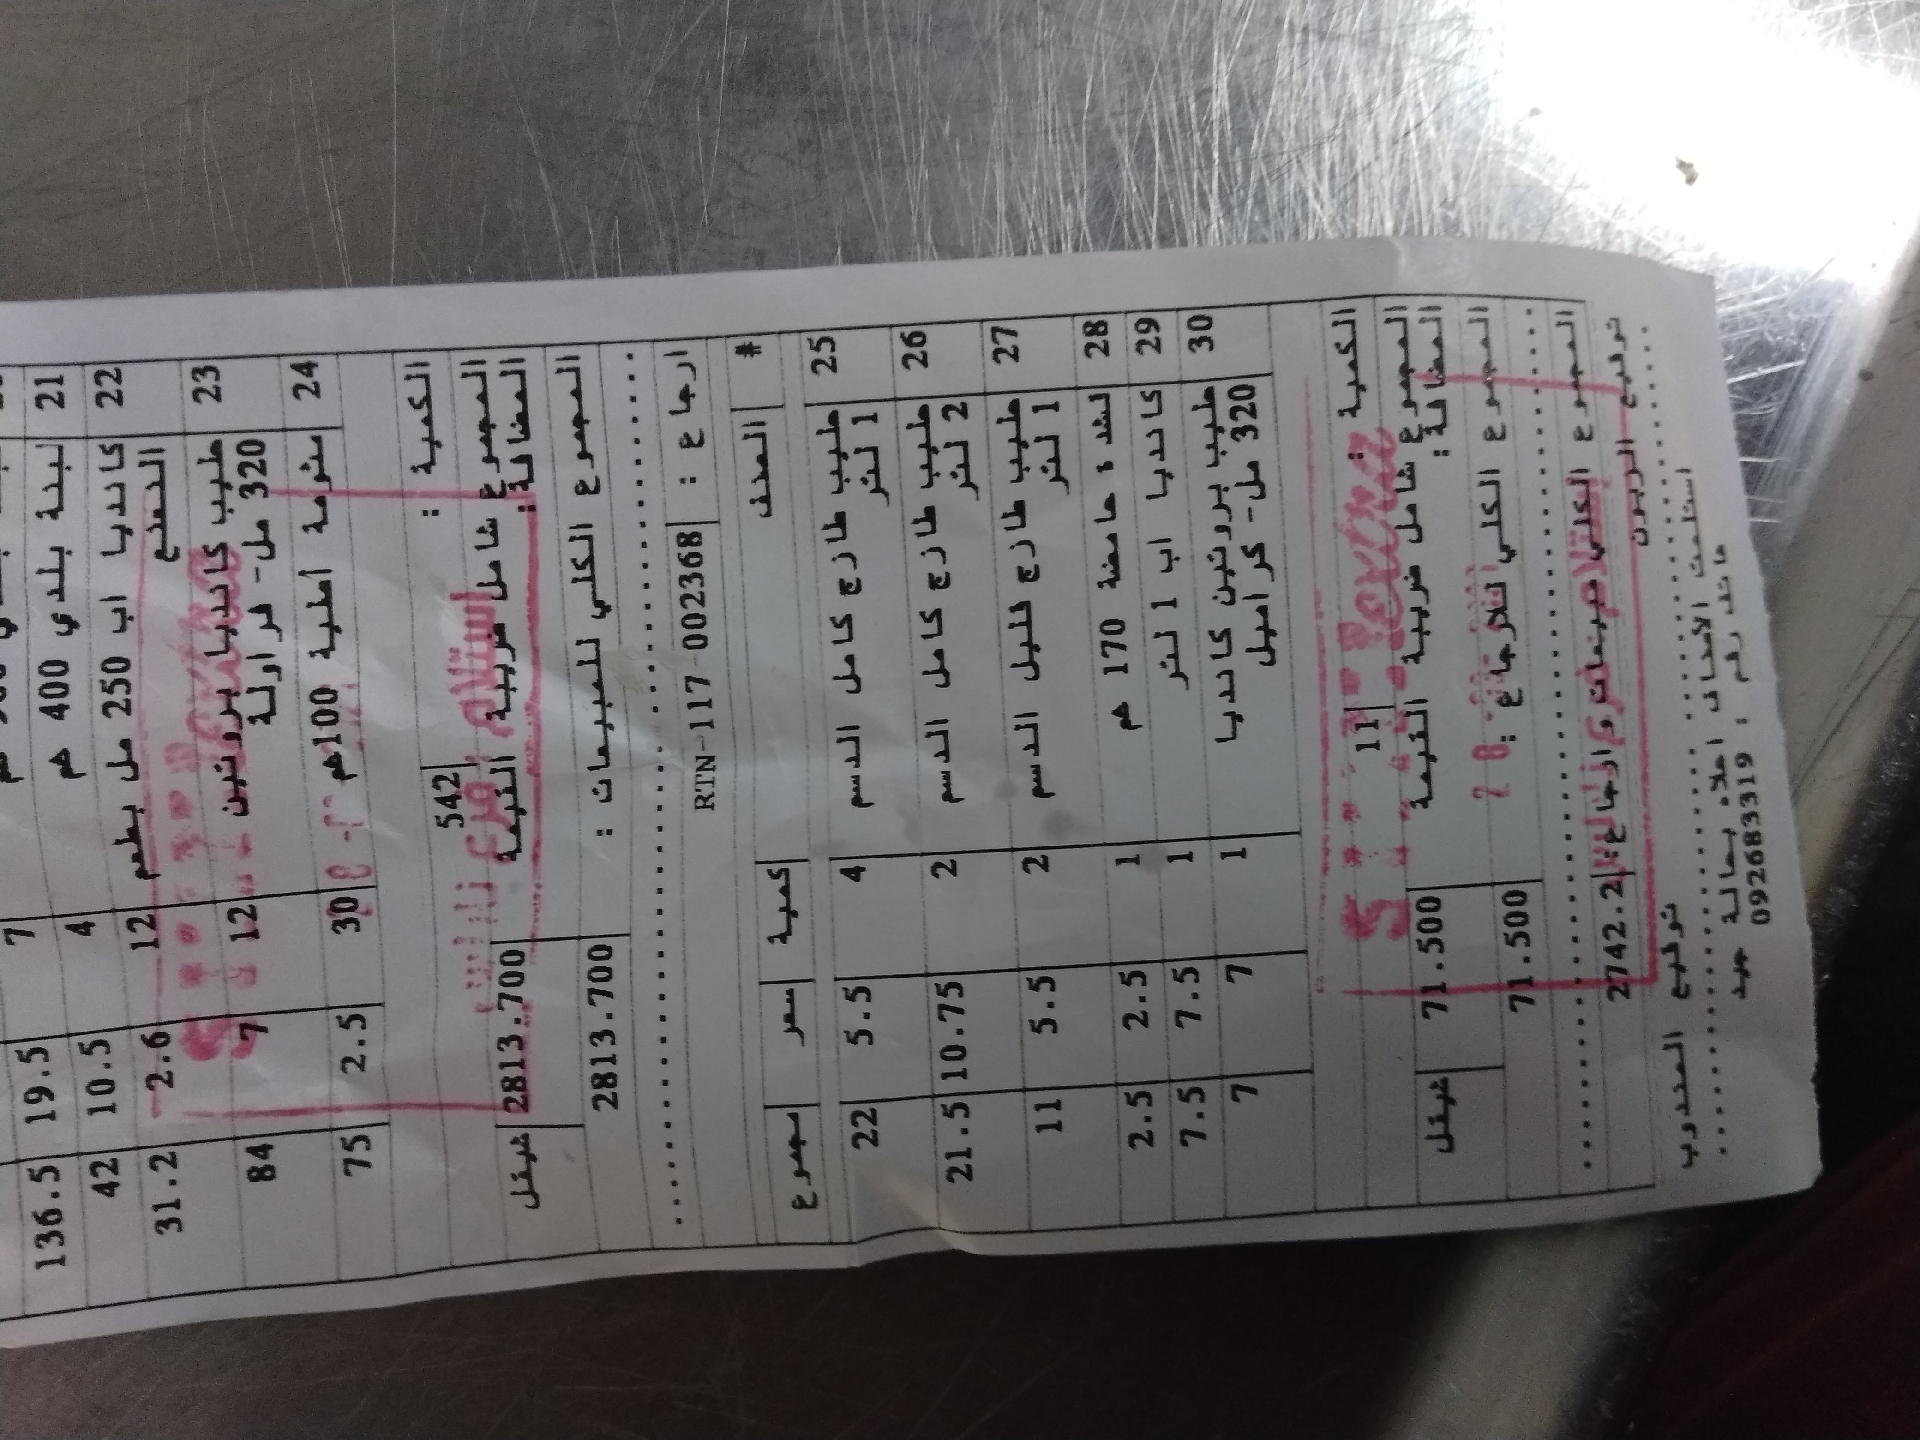 21 لبنة بلدي 400 غم 7 19.5 136.5
22 كانديا اب 250 مل بطعم 4 10.5 42
النعنع 12 2.6 31.2
23 حليب كانديا بروتين 12 7 84
320 مل- فراولة
24 مثومة اصلية 100غم 30 2.5 75
الكمية : 542
المجموع شامل ضريبة القيمة 2813.700 شيقل
المضافة:
المجموع الكلي للمبيعات : 2813.700
ارجاع : RTN-117-002368
# الصنف كمية سعر مجموع
25 حليب طازج كامل الدسم 4 5.5 22
1 لتر
26 حليب طازج كامل الدسم 2 10.75 21.5
2 لتر
27 حليب طازج قليل الدسم 2 5.5 11
1 لتر
28 قشدة حامضة 170 غم 1 2.5 2.5
29 كانديا اب 1 لتر 1 7.5 7.5
30 حليب بروتين كانديا 1 7 7
320 مل- كراميل
الكمية : 11
المجموع شامل ضريبة القيمة 71.500 شيقل
المضافة :
المجموع الكلي للارجاع : 71.500
المجموع الكلي مبيعات وارجاع: 2742.2
توقيع الزبون توقيع المندوب
استلمت الأصناف اعلاه بحالة جيدة
هاتف رقم : 092683319